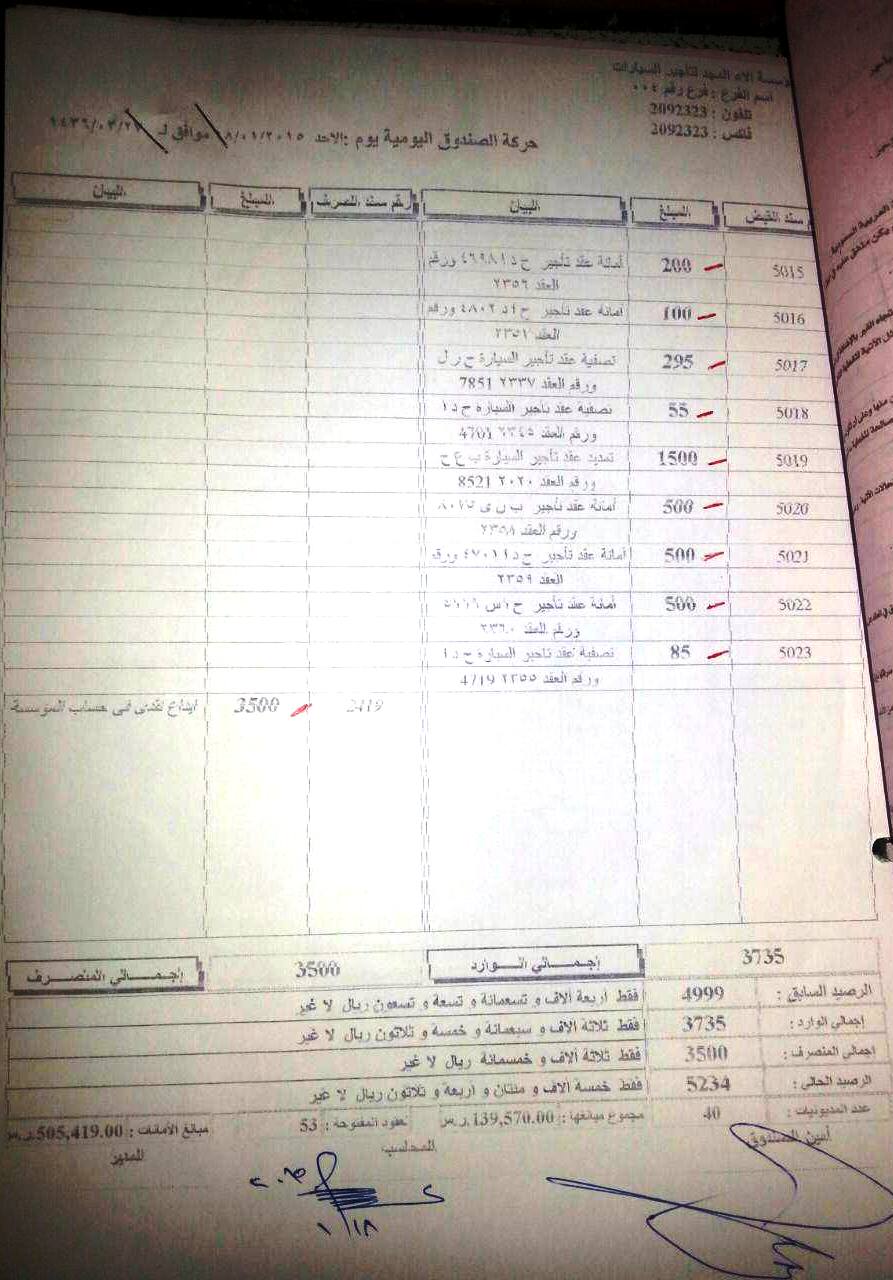 مؤسسة الاء المجد لتأجير السيارات
اسم الفرع : فرع رقم ٠٠٤
تلفون : 2092323
فاكس : 2092323
حركة الصندوق اليومية يوم :الاحد ١٨/٠١/٢٠١٥ موافق لـ ١٤٣٦/٠٣/٢٧
سند القبض المبلغ البيان رقم سند الصرف المبلغ البيان
5015 200 أمانة عقد تأجير ح د ا ٤٦٩٨ ورقم
العقد ٢٣٥٦
5016 100 أمانة عقد تأجير ح د ا ٤٨٠٢ ورقم
العقد ٢٣٥١
5017 295 تصفية عقد تأجير السيارة ح ر ل
7851 ورقم العقد ٢٣٣٧
5018 55 تصفية عقد تأجير السيارة ح د ا
4701 ورقم العقد ٢٣٤٥
5019 1500 تمديد عقد تأجير السيارة ب ع ح
8521 ورقم العقد ٢٠٢٠
5020 500 أمانة عقد تأجير ب ى
ورقم العقد ٢٣٥٨
5021 500 أمانة عقد تأجير ح د ا ٤٧٠١ ورقم
العقد ٢٣٥٩
5022 500 أمانة عقد تأجير ح ا س
ورقم العقد ٢٣٦٠
5023 85 تصفية عقد تأجير السيارة ح د ا
ورقم العقد ٢٣٥٥
2419 3500 ايداع نقدى فى حساب المؤسسة
3735 إجمالي الوارد 3500 إجمالي المنصرف
الرصيد السابق : 4999 فقط أربعة الاف و تسعمائة و تسعة و تسعون ريال لا غير
إجمالي الوارد : 3735 فقط ثلاثة الاف و سبعمائة و خمسة و ثلاثون ريال لا غير
اجمالى المنصرف : 3500 فقط ثلاثة ألاف و خمسمائة ريال لا غير
الرصيد الحالى : 5234 فقط خمسة الاف و مئتان و اربعة و ثلاثون ريال لا غير
عدد المديونيات : 40 مجموع مبالغها : 139,570.00ر.س عقود المفتوحة : 53 مبالغ الأمانات : 505,419.00ر.س
أمين الصندوق المحاسب المدير
١/١٨